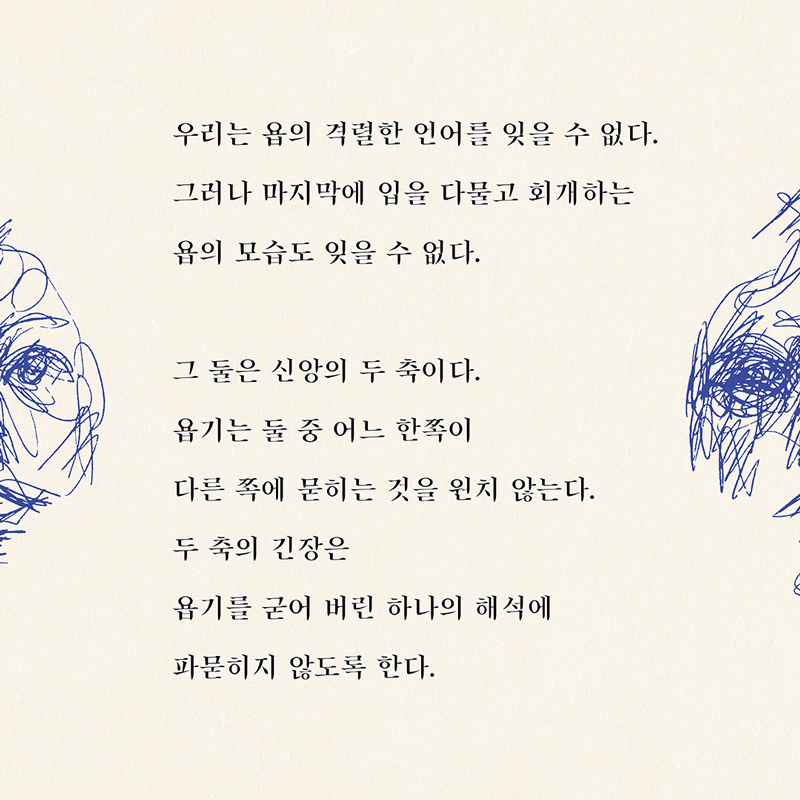 우리는 욥의 격렬한 언어를 잊을 수 없다.
그러나 마지막에 입을 다물고 회개하는
욥의 모습도 잊을 수 없다.
그 둘은 신앙의 두 축이다.
욥기는 둘 중 어느 한쪽이
다른 쪽에 묻히는 것을 원치 않는다.
두 축의 긴장은
욥기를 굳어 버린 하나의 해석에
파묻히지 않도록 한다.